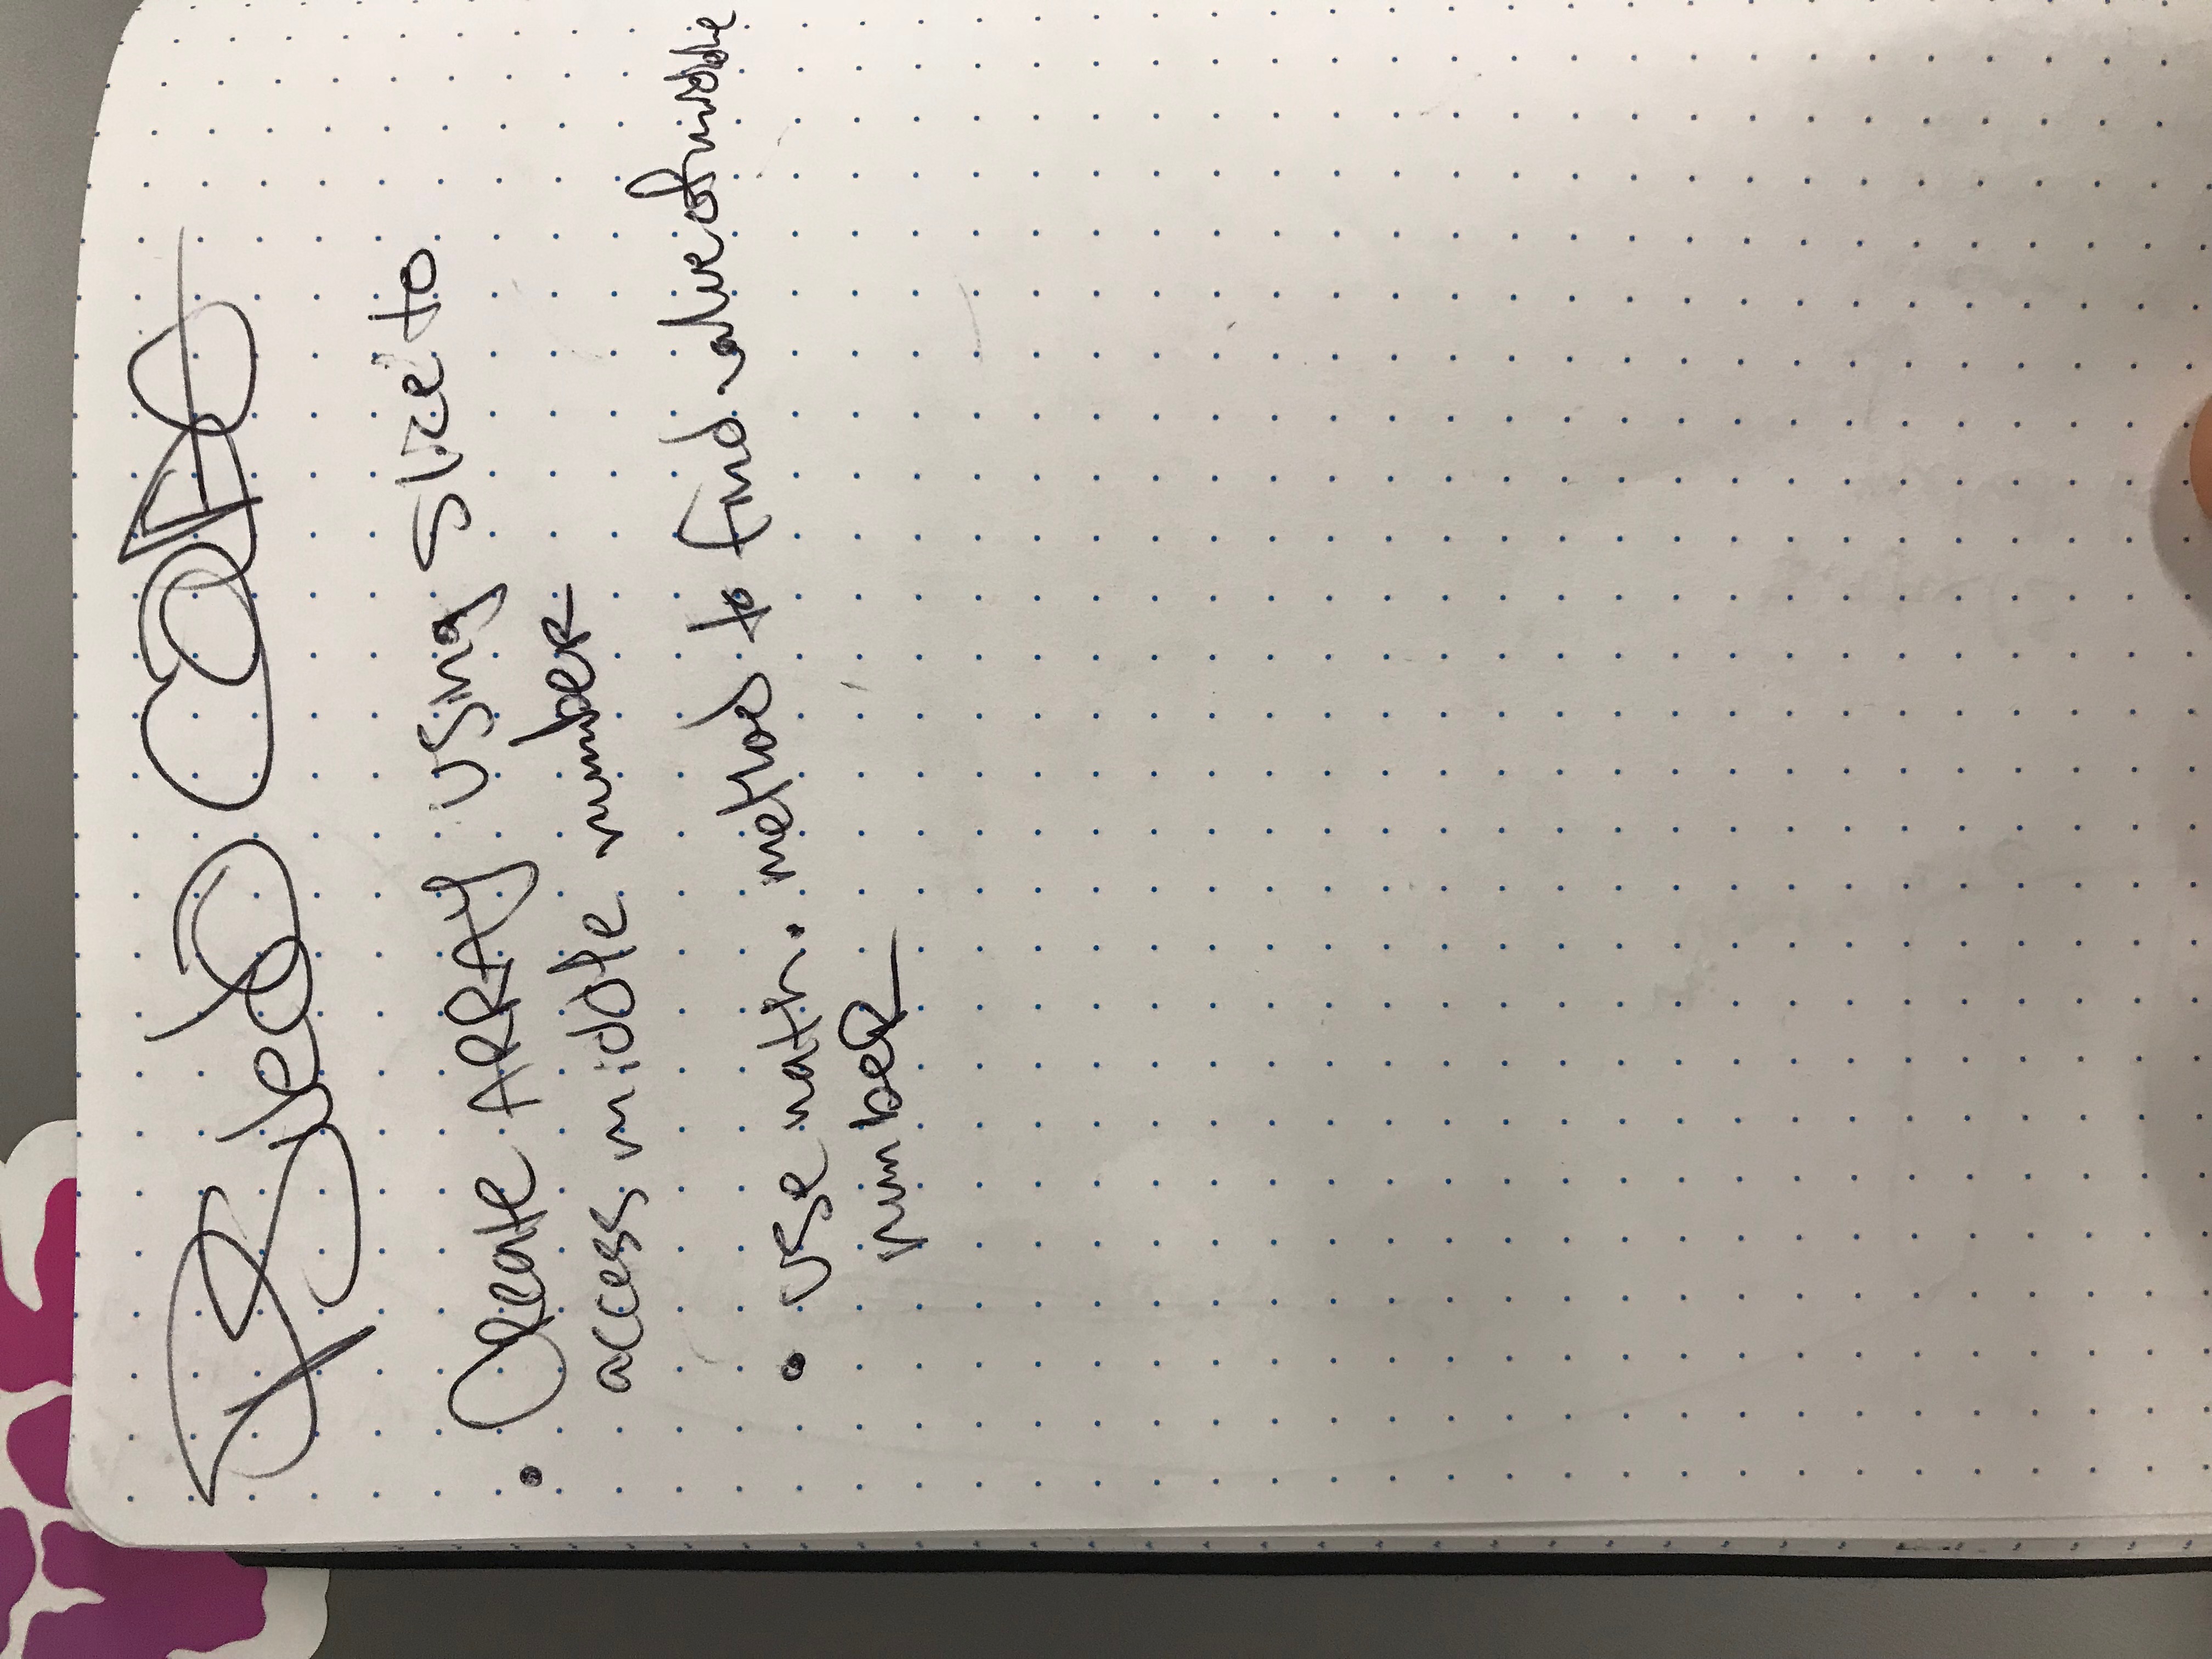 PSuedo CODE
• Create ARRAY Using Slice to
access middle number
• Use math. method to find value of middle
number